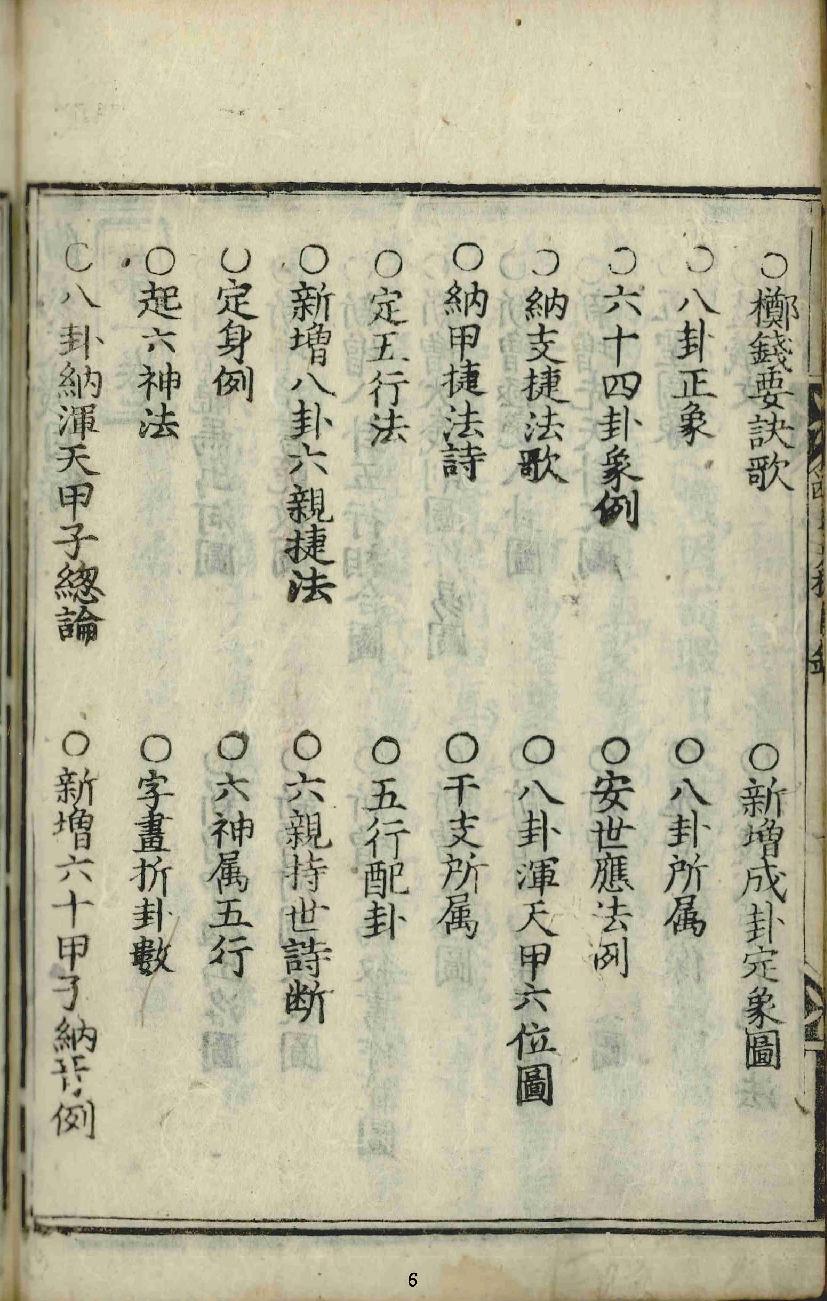 ○擲錢要訣歌 ○新增成卦定象圖
○八卦正象 ○八卦所属
○六十四卦象例 ○安世應法例
○納支捷法歌 ○八卦渾天甲六位圖
○納甲捷法詩 ○干支所属
○定五行法 ○五行配卦
○新增八卦六親捷法 ○六親持世詩断
○定身例 ○六神属五行
○起六神法 ○字畫折卦數
○八卦納渾天甲子總論 ○新增六十甲子納音例
6